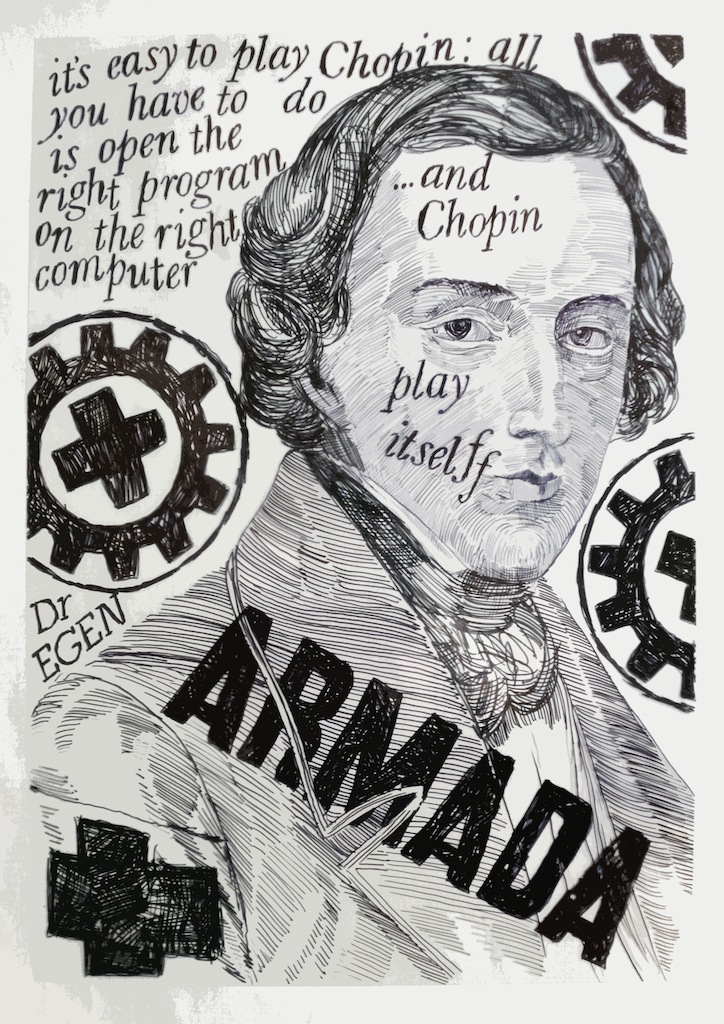 it's easy to play Chopin: all
you have to do
is open the
right program
on the right
computer
...and
Chopin
play
itselff
Dr
EGEN
ARMADA